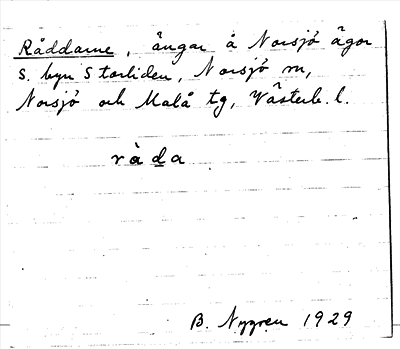 Råddarne, ängar å Norsjö ägor
S. byn Storliden, Norsjö sn,
Norsjö och Malå tg, Västerb. l.
ràda
B. Nygren 1929